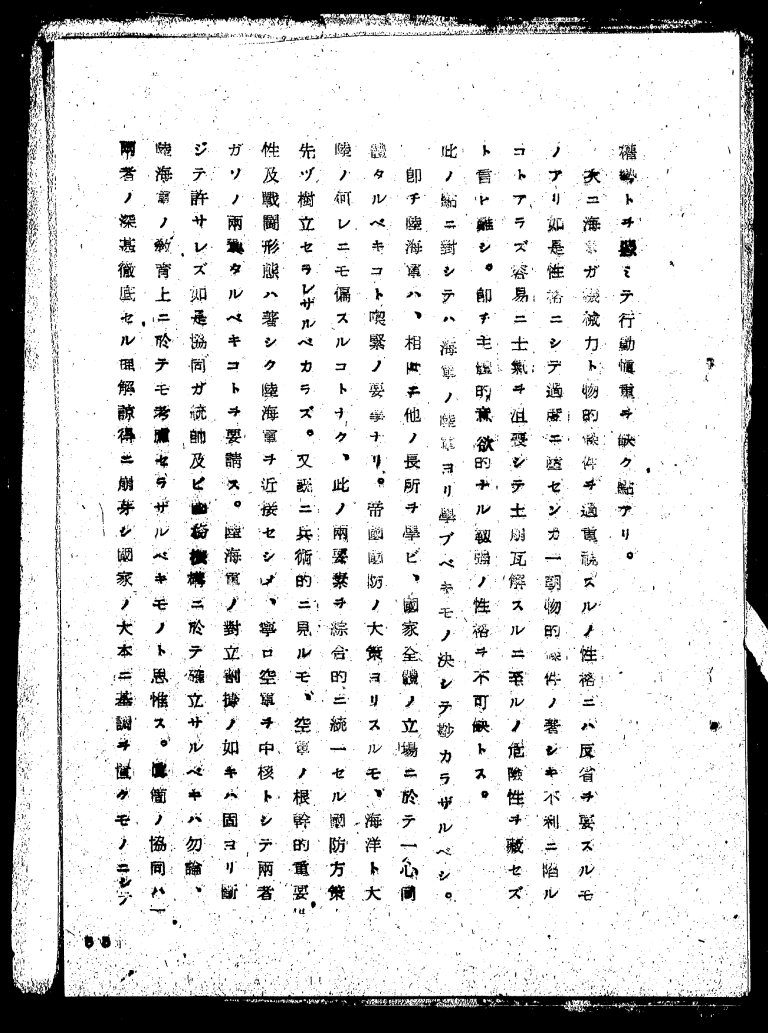 權勢トヲ鑑ミテ行動愼重ヲ缺ク點アリ。
次ニ海軍ガ機械力ト物的條件ヲ過重視スルノ性格ニハ反省ヲ要スルモ
ノアリ如是性格ニシテ過度ニ墮センカ一朝物的條件ノ著シキ不利ニ陷ル
コトアラズ容易ニ士氣ヲ沮喪シテ土崩瓦解スルニ至ルノ危險性ヲ藏セズ
ト言ヒ難シ。卽チ主觀的意欲的ナル靱强ノ性格ヲ不可缺トス。
此ノ點ニ對シテハ海軍ノ陸軍ヨリ學ブベキモノ決シテ尠カラザルベシ。
卽チ陸海軍ハ、相互ニ他ノ長所ヲ學ビ、國家全體ノ立場ニ於テ一心同
體タルベキコト喫緊ノ要事ナリ。帝國國防ノ大策ヨリスルモ、海洋ト大
陸ノ何レニモ偏スルコトナク、此ノ兩要素ヲ綜合的ニ統一セル國防方策
先ヅ樹立セラレザルベカラズ。又純ニ兵術的ニ見ルモ、空軍ノ根幹的重要
性及戰鬪形態ハ著シク陸海軍ヲ近接セシメ、寧ロ空軍ヲ中核トシテ兩者
ガソノ兩翼タルベキコトヲ要請ス。陸海軍ノ對立割據ノ如キハ固ヨリ斷
ジテ許サレズ如是協同ガ統帥及ビ國務機構ニ於テ確立サルベキハ勿論、
陸海軍ノ敎育上ニ於テモ考慮セラザルベキモノト思惟ス。眞箇ノ協同ハ一
兩者ノ深甚徹底セル理解諒得ニ崩芽シ國家ノ大本ニ基調ヲ置クモノニシテ